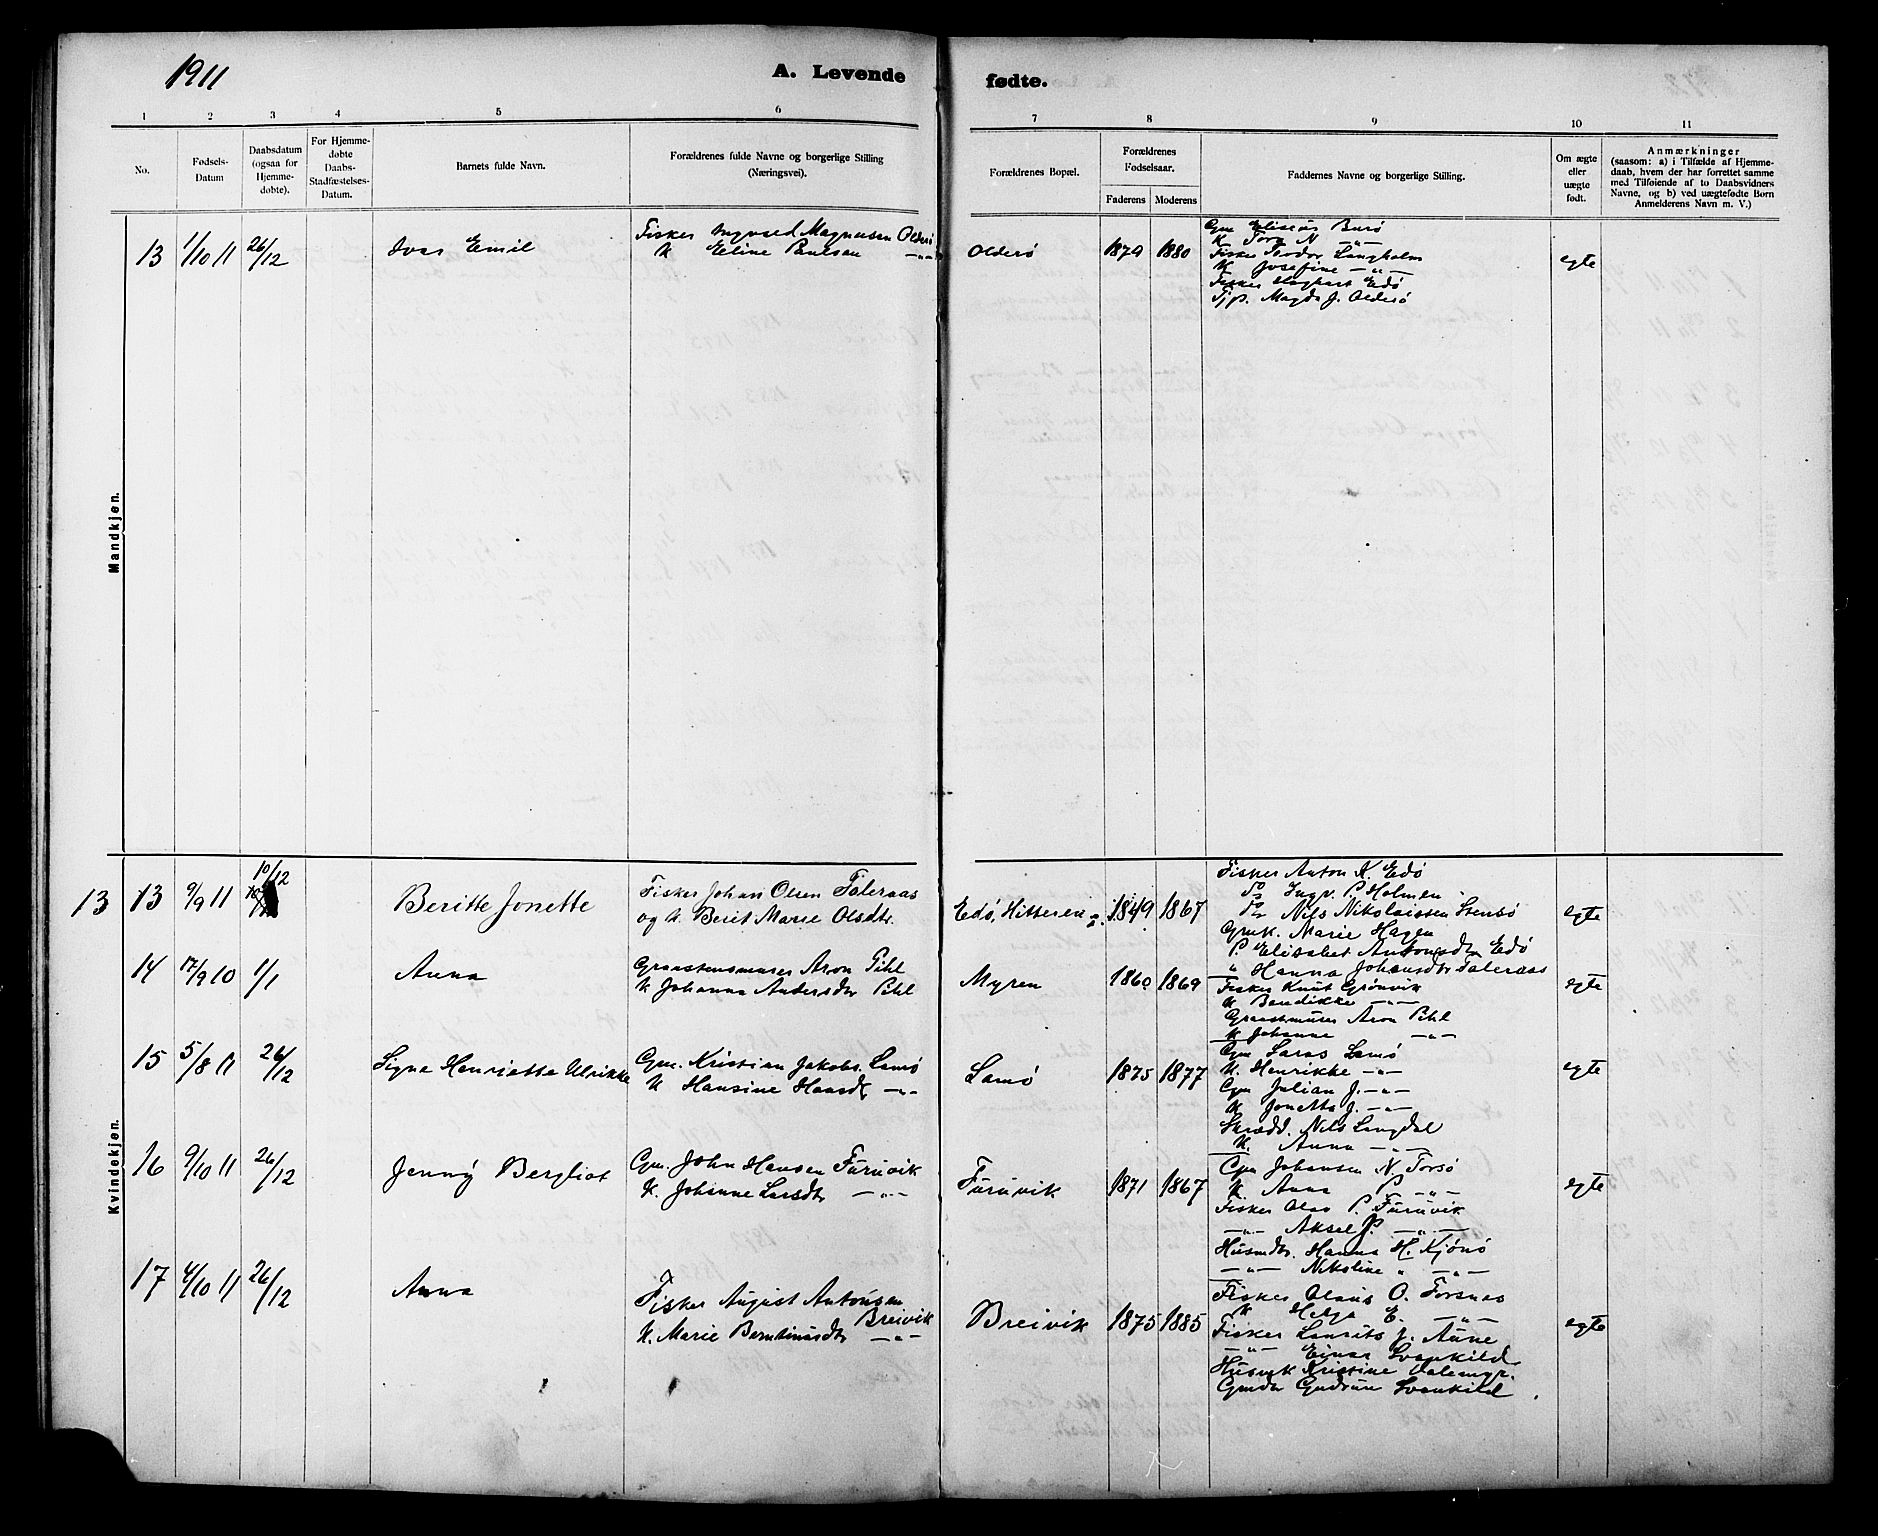 1911
A. Levende fødte.
1 2 3 4 5 6 7 8 9 10 11
No.
Fødsels-
Datum
Daabsdatum
(ogsaa for
Hjemme-
døbte).
For Hjemme-
døbte
Daabs-
Stadfæstelses-
Datum.
Barnets fulde Navn.
Forældrenes fulde Navne og borgerlige Stilling
(Næringsvei).
Forældrenes Bopæl.
Forældrenes
Fødselsaar.
Faderens Moderens
Faddernes Navne og borgerlige Stilling.
Om ægte
eller
uægte
født.
Anmærkninger
(saasom: a) i Tilfælde af Hjemme-
daab, hvem der har forrettet samme
med Tilføiende af to Daabsvidners
Navne, og b) ved uægtefødte Børn
Anmelderens Navn m. V.)
Mandkjøn.
13 1/10 11 26/12
Ivar Emil
Fisker Ingvald Magnussen Olderø
K Eline Paulsen —"—
Olderø
1879 1880
Gm Eliseus Burø
K Tora N —"—
Fisker Teodor Langholm
K Josefine —"—
Fisker Hagbart Edø
Tjp. Magda J. Olderø
egte
Kvindekjøn.
13 13 9/9 11 10/12
Beritte Jonette
Fisker Johan Olsen Taleraas
og K. Beret Marie Olsdtr.
Edø, Hitteren
1849 1867
Fisker Anton K. Edø
Do Ingv. P. Holmen
Do Nils Nikolaissen Stensø
Gmk. Marie Hagen
P. Elisabet Antonsdtr Edø
" Hanna Johansdtr Taleraas
egte
14 17/9 10 1/1
Anna
Graastensmurer Aron Pihl
K Johanna Andersdtr Pihl
Myren
1860 1869
Fisker Knut Grønvik
K Bendikke —"—
Graastmurer Aron Pihl
K Johanne —"—
egte
15 5/8 11 26/12
Signe Henriette Ulrikke
Gm. Kristian Jakobs. Lamø
K Hansine Hansdtr —"—
Lamø
1875 1877
Gm Laras Lamø
K. Henrikke —"—
Gm Julian J. —"—
K Jonetta J. —"—
Skrædd. Nils Langdal
K. Anna —"—
egte
16 9/10 11 26/12
Jenny Bergliot
Gm. John Hansen Furuvik
K. Johanne Larsdtr —"—
Furuvik
1871 1867
Gm Johansen N. Torsø
K. Anna P —"—
Fisker Olav P. Furuvik
—"— Aksel P. —"—
Husmdtr. Hanna H. Kjønø
—"— Nikoline " —"—
egte
17 4/10 11 26/12
Anna
Fisker August Antonsen
Breivik
K. Marie Berntinusdtr —"—
Breivik
1875 1885
Fisker Olaus O. Forsnes
K Helga E. —"—
Fisker Laurits J. Aune
—"— Einar Svankild
Husmk Kristine Dalemyr.
Gmdtr Gudrun Svankild
egte